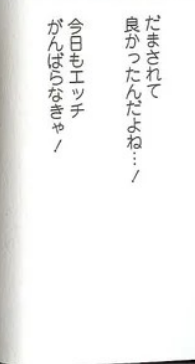 だまされて
良かったんだよね…！
今日もエッチ
がんばらなきゃ！